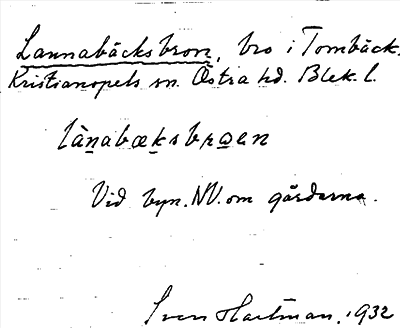 Lannabäcksbron, bro i Tombäck.
Kristianopels sn. Östra hd. Blek. l.
lànabæksbroen
Vid byn. NV. om gårderna.
Sven Hartman. 1932